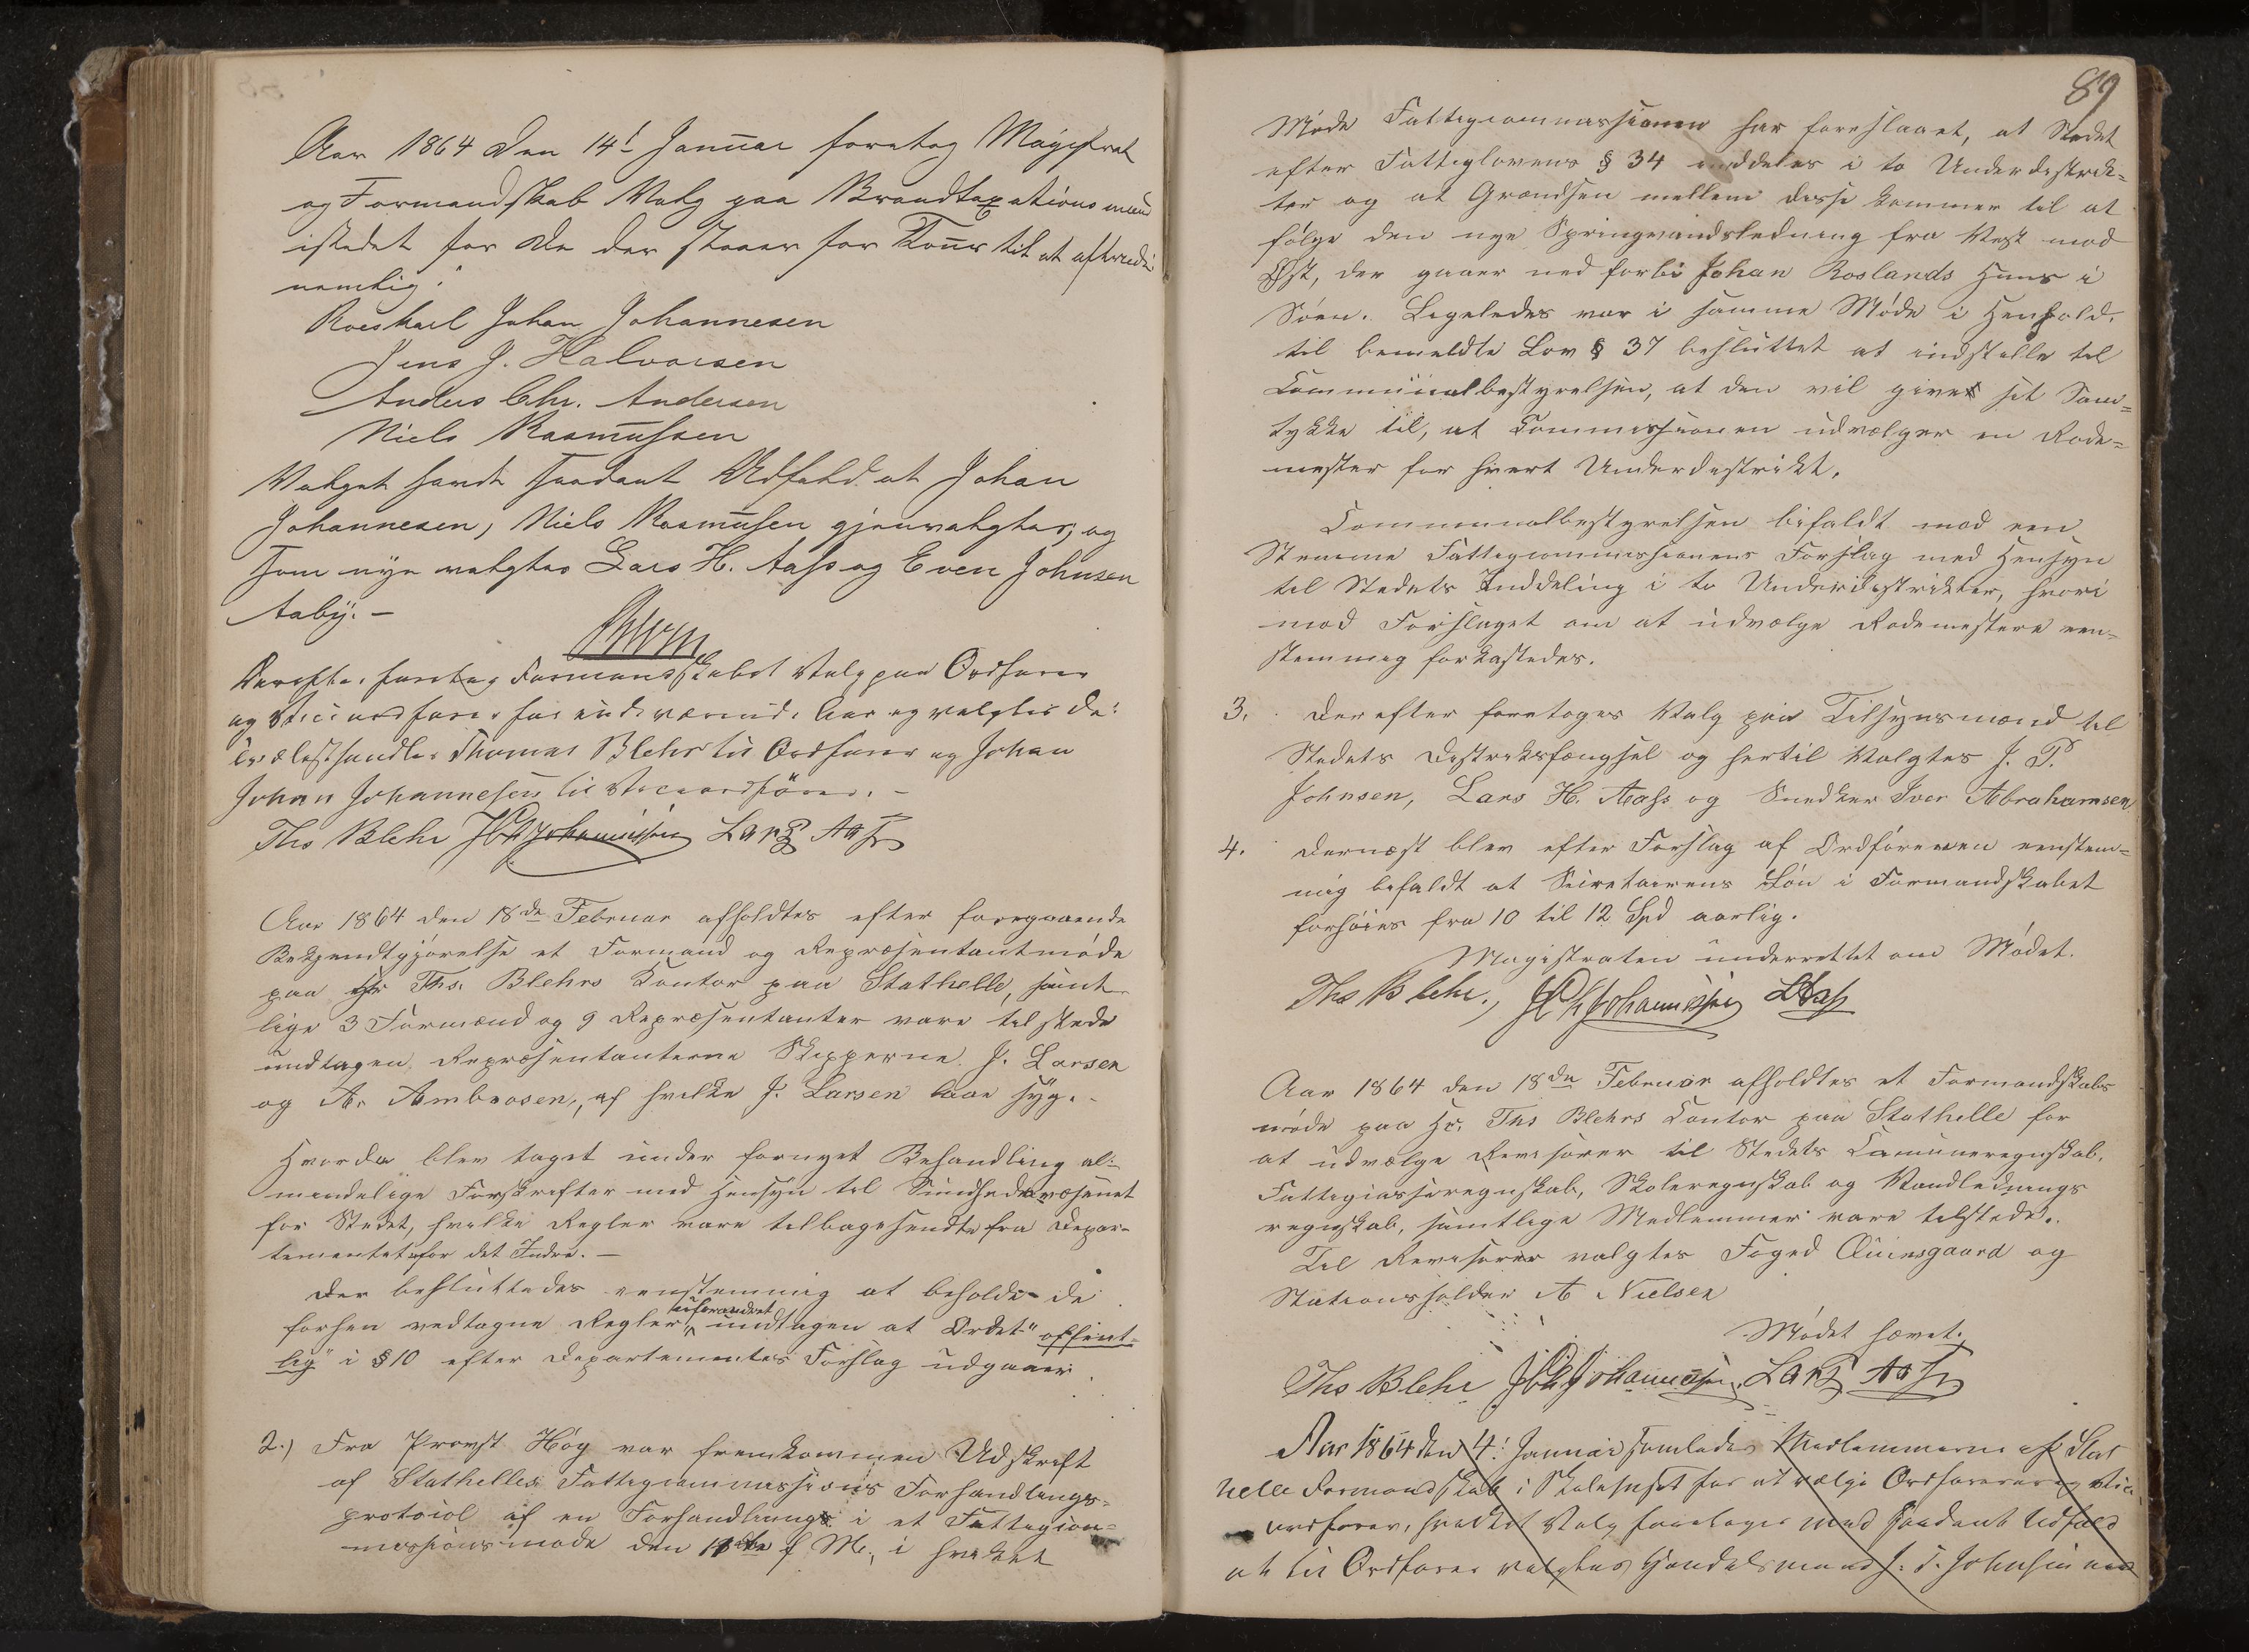 Aar 1864 den 14t Januar foretog Magistrat
og Formandskab Valg paa Brandtaxationsmænd
istedet for de der staaer for Tour til at aftræde
nemlig:
Johan Johannesen
Jens J. Halvorsen
Anders Chr. Andersen
Niels Rasmussen
Valget havde saadant Udfald at Johan
Johannesen, Niels Rasmusen gjenvalgtes, og
som nye valgtes Lars H. Aass og Even Johnsen
Aaby. –
Derefter foretog Formandskabet Valg paa Ordfører
og Viceordfører for indeværende Aar og valgtes da:
Trælasthandler Thomas Blehr til Ordfører og Johan
Johan Johannesen til Viceordfører. –
Ths Blehr Joh Johannessen Lars Aass
Aar 1864 den 18de Februar afholdtes efter foregaaende
Bekjendtgjørelse et Formand og Repræsentantmøde
paa Hr Ths. Blehrs Contor paa Stathelle, samt-
lige 3 Formænd og 9 Repræsentanter vare tilstede
undtagen Repræsentanterne Skipperne J. Larsen
og A. Ambrosen, af hvilke J. Larsen laae syg. –
Hvorda blev taget under fornyet Behandling al-
mindelige Forskrifter med Hensyn til Sundhedsvæsenet
for Stedet, hvilke Regler vare tilbagesendte fra Depar-
tementet for det Indre. –
Der besluttedes eenstemmig at beholde de
forhen vedtagne Regler uforandret undtagen at Ordet "offent-
lig" i § 10 efter Departementets Forslag udgaaer.
2.) Fra Provst Høg var fremkommen Udskrift
af Stathelles Fattigcommissions Forhandlings-
protocol af en Forhandling i et Fattigcom-
missionsmøde den f. M., i hvilket
89
Møde Fattigcommissionen har foreslaaet, at Stedet
efter Fattiglovens § 34 inddeles i to Underdistrik-
ter og at Grændsen mellem disse kommer til at
følge den nye Springvandsledning fra Vest mod
Øst, der gaaer ned forbi Johan Roslands Huus i
Søen. Ligeledes var i samme Møde i Henhold
til bemeldte Lov § 37 besluttet at indstille til
Communalbestyrelsen, at den vil give sit Sam-
tykke til, at Commissionen udvælger en Rode-
mester for hvert Underdistrikt.
Communalbestyrelsen bifaldt mod een
Stemme Fattigcommissionens Forslag med Hensyn
til Stedets Inddeling i to Underdistrikter, hvori
mod Forslaget om at udvælge Rodemestere een-
stemmig forkastedes.
3. Derefter foretoges Valg paa Tilsynsmænd til
Stedets Distriktsfængsel og hertil Valgtes J. T.
Johnsen, Lars H. Aass og Snedker Iver Abrahamsen
4. Dernæst blev efter Forslag af Ordføreren eenstem-
mig bifaldt at Secretairens Løn i Formandskabet
forhøies fra 10 til 12 Spd aarlig.
Magistraten underrettet om Mødet.
Ths Blehr., Joh Johannessen LAass
Aar 1864 den 18de Februar afholdtes et Formandskabs
møde paa Hr. Ths Blehrs Contor paa Stathelle for
at udvælge Revisorer til Stedets Communeregnskab,
Fattigcasseregnskab, Skoleregnskab og Vandlednings
regnskab, samtlige Medlemmer vare tilstede.
Til Revisorer valgtes Foged Qvinsgaard og
Stationsholder A Nielsen
Mødet hævet.
Ths Blehr Joh Johannessen, Lars Aass
Aar 1864 den 4: Januar samledes Medlemmerne af Stat
helle Formandskab i Skolehuset for at vælge Ordfører og Vice
ordfører, hvilket Valg foretoges med saadant Udfald
at til Ordfører valgtes Handelsmand J. T. Johnsen